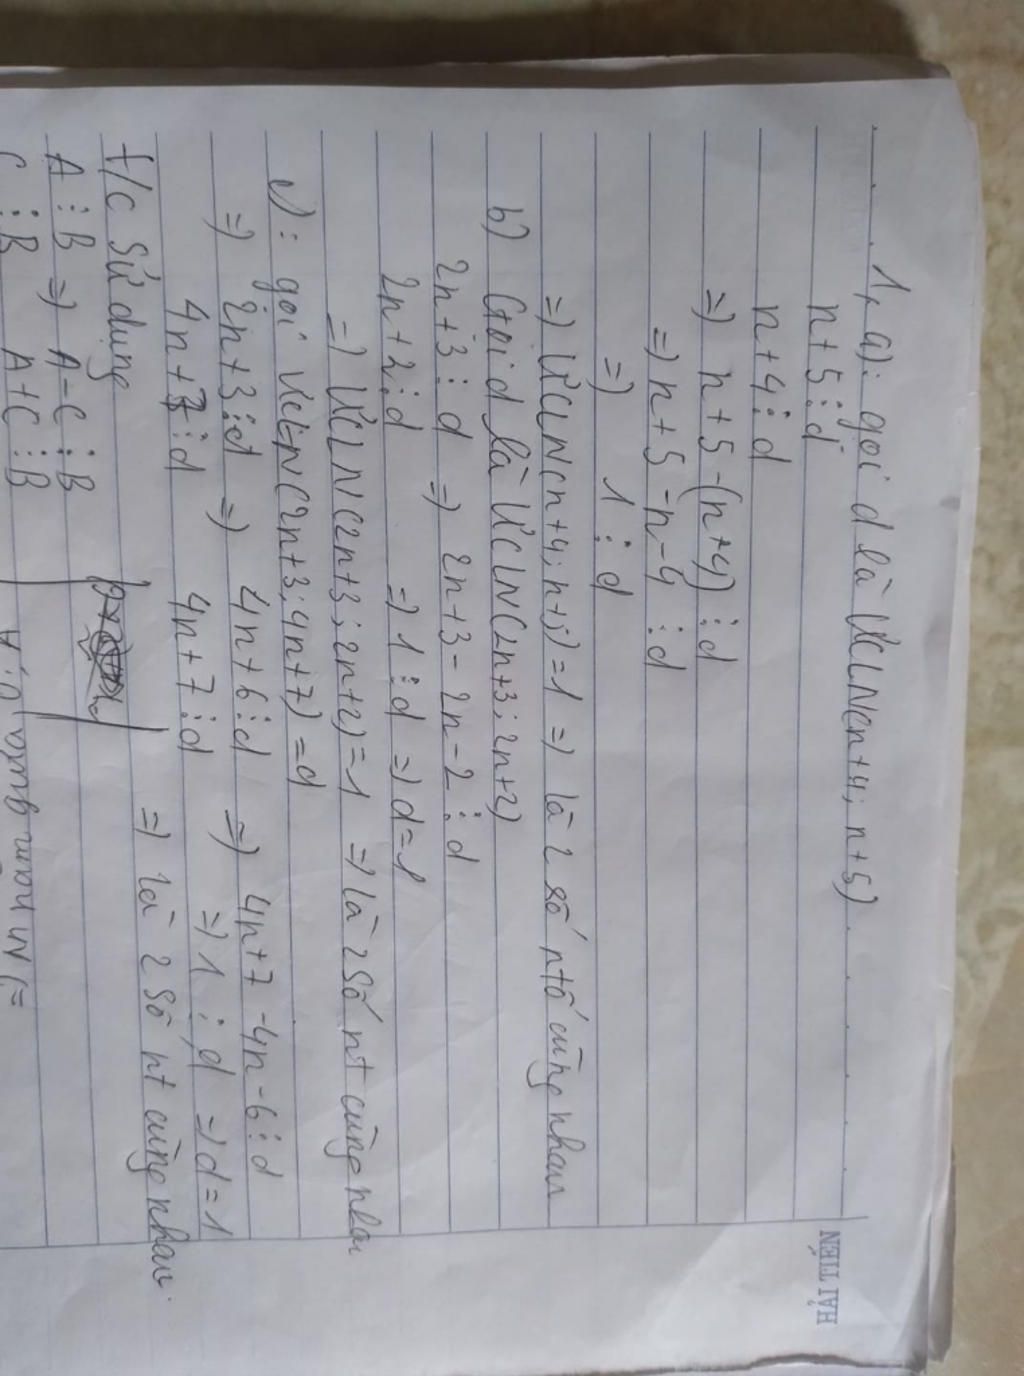 HẢI TIẾN
1, a): gọi d là ƯCLN(n+4; n+5)
n+5⋮d
n+4⋮d
=) n+5-(n+4)⋮d
=) n+5-n-4 ⋮d
=) 1⋮d
=) ƯCLN(n+4; n+5)=1 =) là 2 số ntố cùng nhau
b) Gọi d là ƯCLN(2n+3; 2n+2)
2n+3⋮d =) 2n+3-2n-2⋮d
2n+2⋮d =) 1⋮d =) d=1
=) ƯCLN(2n+3; 2n+2)=1 =) là 2 số nt cùng nhau
gọi ƯCLN(2n+3; 4n+7)=d
=) 2n+3⋮d =) 4n+6⋮d =) 4n+7-4n-6⋮d
4n+7⋮d 4n+7⋮d =) 1⋮d =) d=1
=) là 2 số nt cùng nhau.
t/c sử dụng
A⋮B =) A-C⋮B
C⋮B A+C⋮B